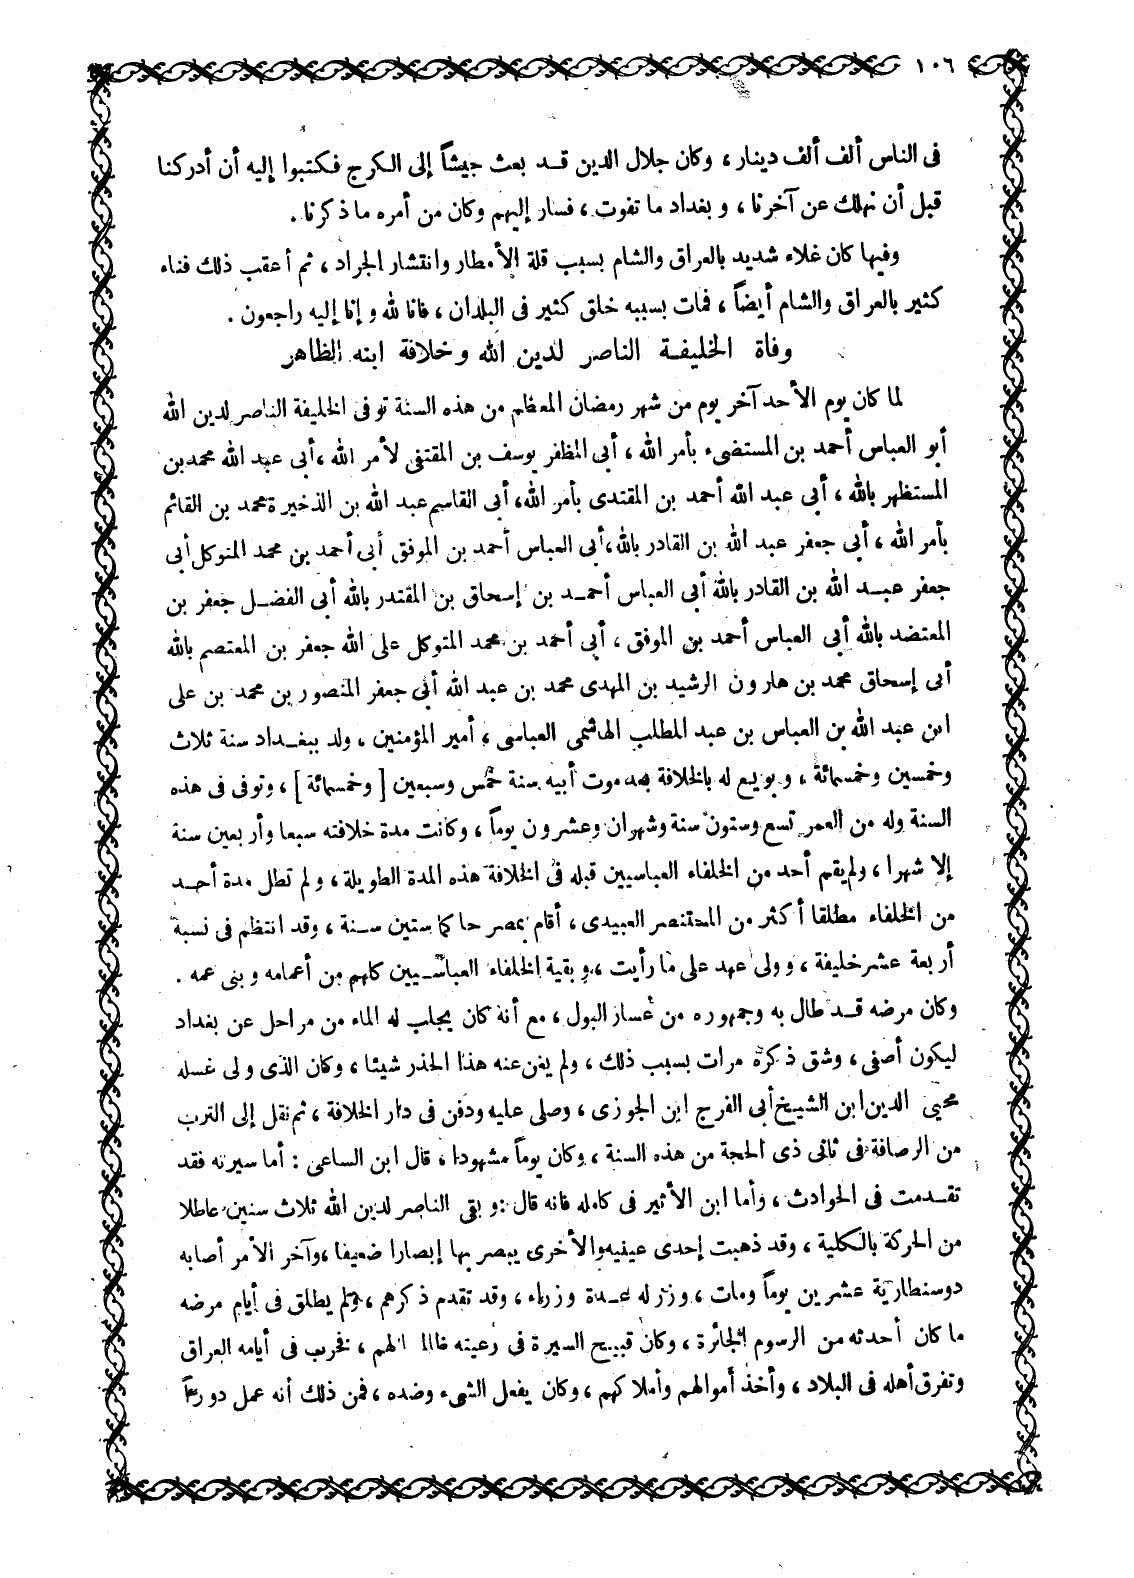 ١٠٦
فى الناس ألف ألف دينار ، وكان جلال الدين قد بعث جيشاً إلى الكرج فكتبوا إليه أن أدركنا
قبل أن نهلك عن آخرنا ، وبغداد ما تفوت ، فسار إليهم وكان من أمره ما ذكرنا .
وفيها كان غلاء شديد بالعراق والشام بسبب قلة الأمطار وانتشار الجراد ، ثم أعقب ذلك فناء
كثير بالعراق والشام أيضاً ، فمات بسببه خلق كثير فى البلدان ، فانا لله و إنا إليه راجعون .
وفاة الخليفة الناصر لدين الله وخلافة ابنه الظاهر
لما كان يوم الأحد آخر يوم من شهر رمضان المعظم من هذه السنة توفى الخليفة الناصر لدين الله
أبو العباس أحمد بن المستضىء بأمر الله ، أبى المظفر يوسف بن المقتفى لأمر الله ، أبى عبد الله محمد بن
المستظهر بالله ، أبى عبد الله أحمد بن المقتدى بأمر الله، أبى القاسم عبد الله بن الذخيرة محمد بن القائم
بأمر الله ، أبى جعفر عبد الله بن القادر بالله، أبى العباس أحمد بن الموفق أبى أحمد بن محمد المتوكل أبى
جعفر عبد الله بن القادر بالله أبى العباس أحمد بن إسحاق بن المقتدر بالله أبى الفضل جعفر بن
المعتضد بالله أبى العباس أحمد بن الموفق ، أبى أحمد بن محمد المتوكل على الله جعفر بن المعتصم بالله
أبى إسحاق محمد بن هارون الرشيد بن المهدى محمد بن عبد الله أبى جعفر المنصور بن محمد بن على
ابن عبد الله بن العباس بن عبد المطلب الهاشمى العباسى ، أمير المؤمنين ، ولد ببغداد سنة ثلاث
وخمسين وخمسمائة ، و بويع له بالخلافة بعد موت أبيه سنة خمس وسبعين [ وخمسمائة ] ، وتوفى فى هذه
السنة وله من العمر تسع وستون سنة وشهران وعشرون يوماً ، وكانت مدة خلافته سبعا وأربعين سنة
إلا شهرا ، ولم يقم أحد من الخلفاء العباسيين قبله فى الخلافة هذه المدة الطويلة ، ولم تطل مدة أحد
من الخلفاء مطلقا أكثر من المستنصر العبيدى ، أقام بمصر حاكما ستين سنة ، وقد انتظم فى نسبه
أربعة عشر خليفة ، و ولى عهد على ما رأيت ، و بقية الخلفاء العباسيين كلهم من أعمامه و بنى عمه .
وكان مرضه قد طال به وجمهوره من عسار البول ، مع أنه كان يجلب له الماء من مراحل عن بغداد
ليكون أصفى ، وشق ذكره مرات بسبب ذلك ، ولم يغن عنه هذا الحذر شيئا ، وكان الذى ولى غسله
محيى الدين ابن الشيخ أبى الفرج ابن الجوزى ، وصلى عليه ودفن فى دار الخلافة ، ثم نقل إلى الترب
من الرصافة فى ثانى ذى الحجة من هذه السنة ، وكان يوماً مشهودا ، قال ابن الساعى : أما سيرته فقد
تقدمت فى الحوادث ، وأما ابن الأثير فى كامله فانه قال : و بقى الناصر لدين الله ثلاث سنين عاطلا
من الحركة بالكلية ، وقد ذهبت إحدى عينيه والأخرى يبصر بها إبصارا ضعيفا ، وآخر الأمر أصابه
دوسنطارية عشرين يوماً ومات ، وزر له عدة وزراء ، وقد تقدم ذكرهم ، ولم يطلق فى أيام مرضه
ما كان أحدثه من الرسوم الجائرة ، وكان قبيح السيرة فى رعيته ظالما لهم ، فخرب فى أيامه العراق
وتفرق أهله فى البلاد ، وأخذ أموالهم وأملاكهم ، وكان يفعل الشىء وضده ، فمن ذلك أنه عمل دو رعاً